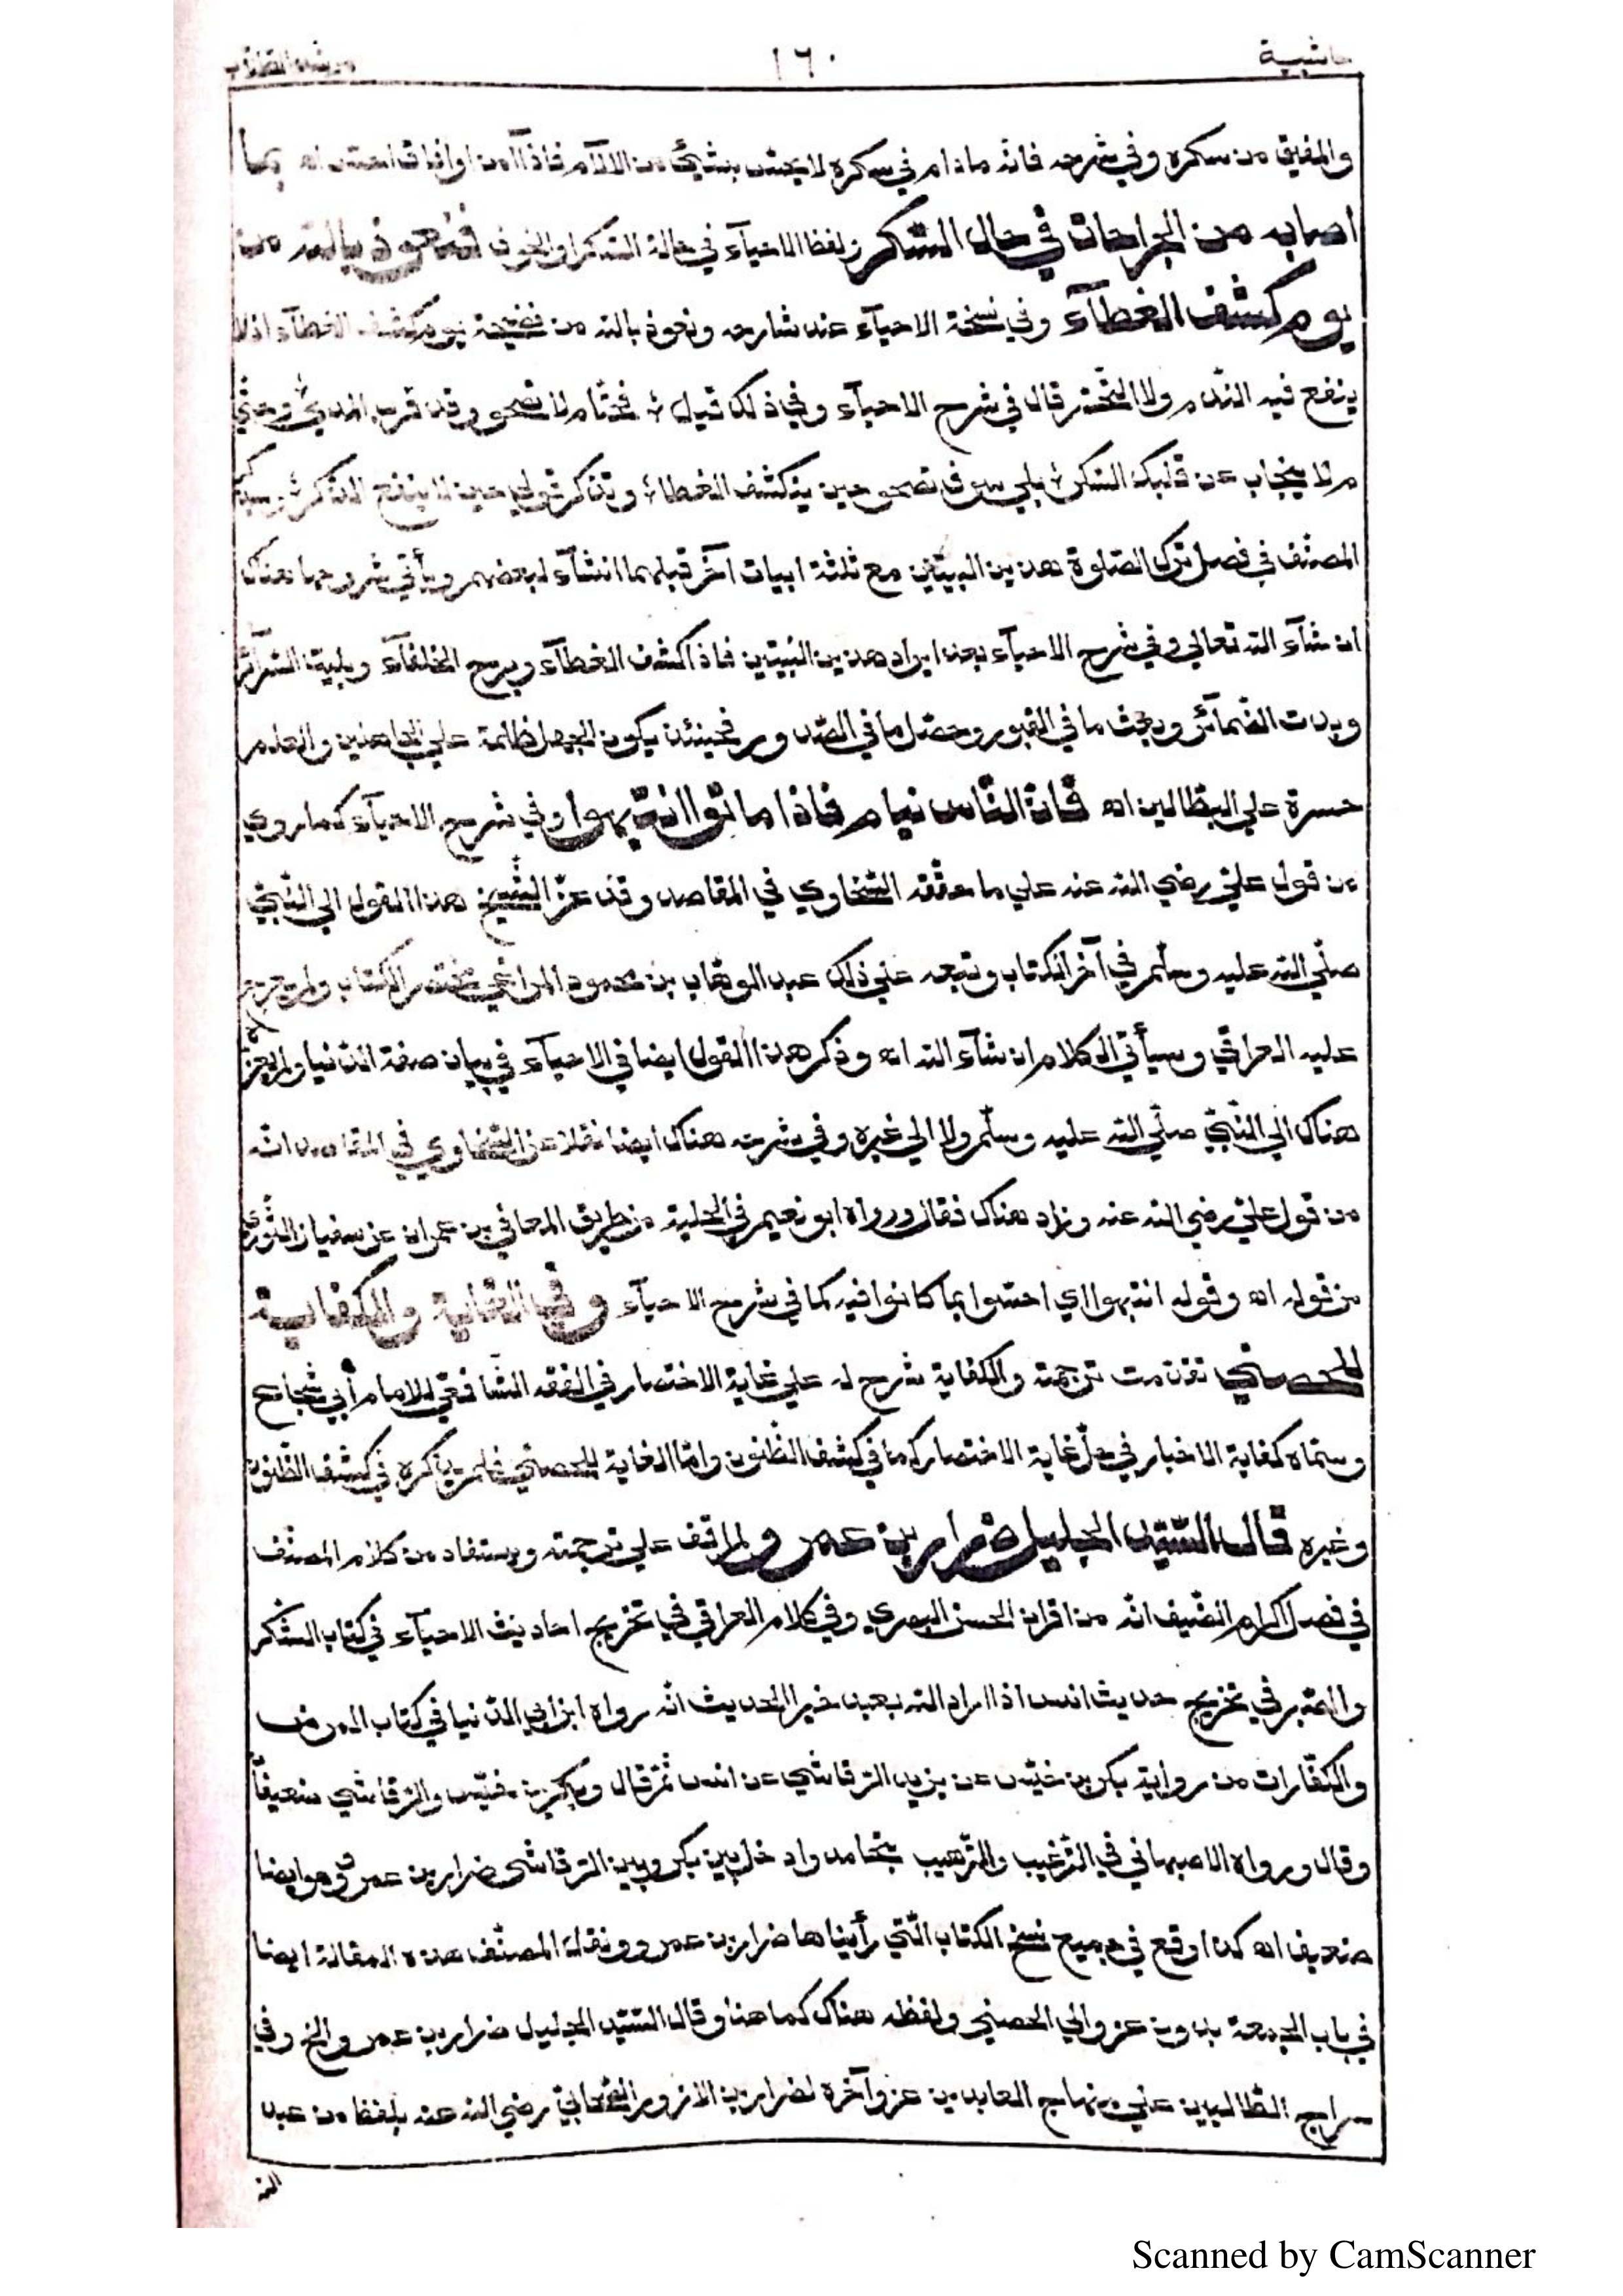 حاشية ١٦٠ مرشد الطلاب
والمفيق من سكره وفي شرحه فانه مادام في سكره لا يحسّ بشيئ من الآلام فاذا أمن اوافاق احسّ اه بما
اصابه من الجراحات في حال السّكر ولفظ الاحيآء في حالة السّكر او الخوف فنعوذ بالله من
يوم كشف الغطآء وفي نسخة الاحيآء عند شارحه ونعوذ بالله من فضيحة يوم كشف الغطآء اذلا
ينفع فيه النّدم ولا التّحسّر قال في شرح الاحيآء وفي ذلك قيل ؛ فحتّام لا تصحو وقد قرب المدي ؛ وحتّي
م لا ينجاب عن قلبك السّكر ؛ بلي سوف تصحو حين ينكشف الغطا ؛ وتذكر قولي حين لا ينفع الذّكر ؛ وسيذكر
المصنّف في فصل ترك الصّلوة هذين البيتين مع ثلثة ابيات آخر قبلهما انشآء لبعضهم ويأتي شروحها هناك
ان شآء الله تعالي وفي شرح الاحيآء بعد ايراد هذين البيتين فاذا كشف الغطآء وبرح الخلفآء وبلية السّرآئر
وبدت الضّمآئر وبعث ما في القبور وحصّل ما في الصّدور فحينئذ يكون الجهل ظلمة علي الجاهلين والعلم
حسرة علي البطّالين اه فانّ النّاس نيام فاذا ماتوا انتبهوا وفي شرح الاحيآء كما روي
من قول عليّ رضي الله عنه علي ما حقّقه السّخاوي في المقاصد وقد عزّ الشّيخ هذا القول الي النّبيّ
صلّي الله عليه وسلّم في آخر الكتاب وتبعه علي ذلك عبد الوهّاب بن محمود المراغي مختصر الكتاب ولم يعرج
عليه العراقي وسيأتي الكلام ان شآء الله اه وذكر هذا القول ايضا في الاحيآء في بيان صفة الدّنيا ولم يعز
هناك الي النّبيّ صلّي الله عليه وسلّم ولا الي غيره وفي شرحه هناك ايضا نقلا عن السّخاوي في المقاصد انّه
من قول عليّ رضي الله عنه وزاد هناك فقال ورواه ابو نعيم في الحلية من طريق المعافي بن عمران عن سفيان الثّوري
من قوله اه وقوله انتبهوا اي احسّوا بما كانوا فيه كما في شرح الاحيآء وفي الغاية والكفاية
للحصني تقدّمت ترجمته والكفاية شرح له علي غاية الاختصار في الفقه الشّافعيّ للامام أبي شجاع
وسمّاه كفاية الاخيار في حلّ غاية الاختصار كما في كشف الظّنون وامّا الغاية للحصني فلم يذكره في كشف الظّنون
وغيره قال السّيّد الجليل ضرار بن عمرو لم اقف علي ترجمته ويستفاد من كلام المصنّف
في فصل اكرام الضّيف انّه من اقران الحسن البصري وفي كلام العراقي في تخريج احاديث الاحيآء في كتاب الشّكر
والصّبر في تخريج حديث انس اذا اراد الله بعبد خيرا الحديث انّه رواه ابن ابي الدّنيا في كتاب المرض
والكفّارات من رواية بكر بن خنيس عن يزيد الرّقاشي عن انس ثمّ قال وبكر بن خنيس والرّقاشي ضعيفان
وقال ورواه الاصبهاني في التّرغيب والتّرهيب بتمامه وادخل بين بكر وبين الرّقاشي ضرار بن عمرو وهو ايضا
ضعيف اه كذا وقع في جميع نسخ الكتاب الّتي رأيناها ضرار بن عمرو ونقل المصنّف هذه المقالة ايضا
في باب الجمعة بدون عزو الي الحصني ولفظه هناك كما هنا وقال السّيّد الجليل ضرار بن عمرو الخ وفي
سراج الطّالبين علي منهاج العابدين عزو آخره لضرار بن الازور الصّحابي رضي الله عنه بلفظ من عبد
الله
Scanned by CamScanner